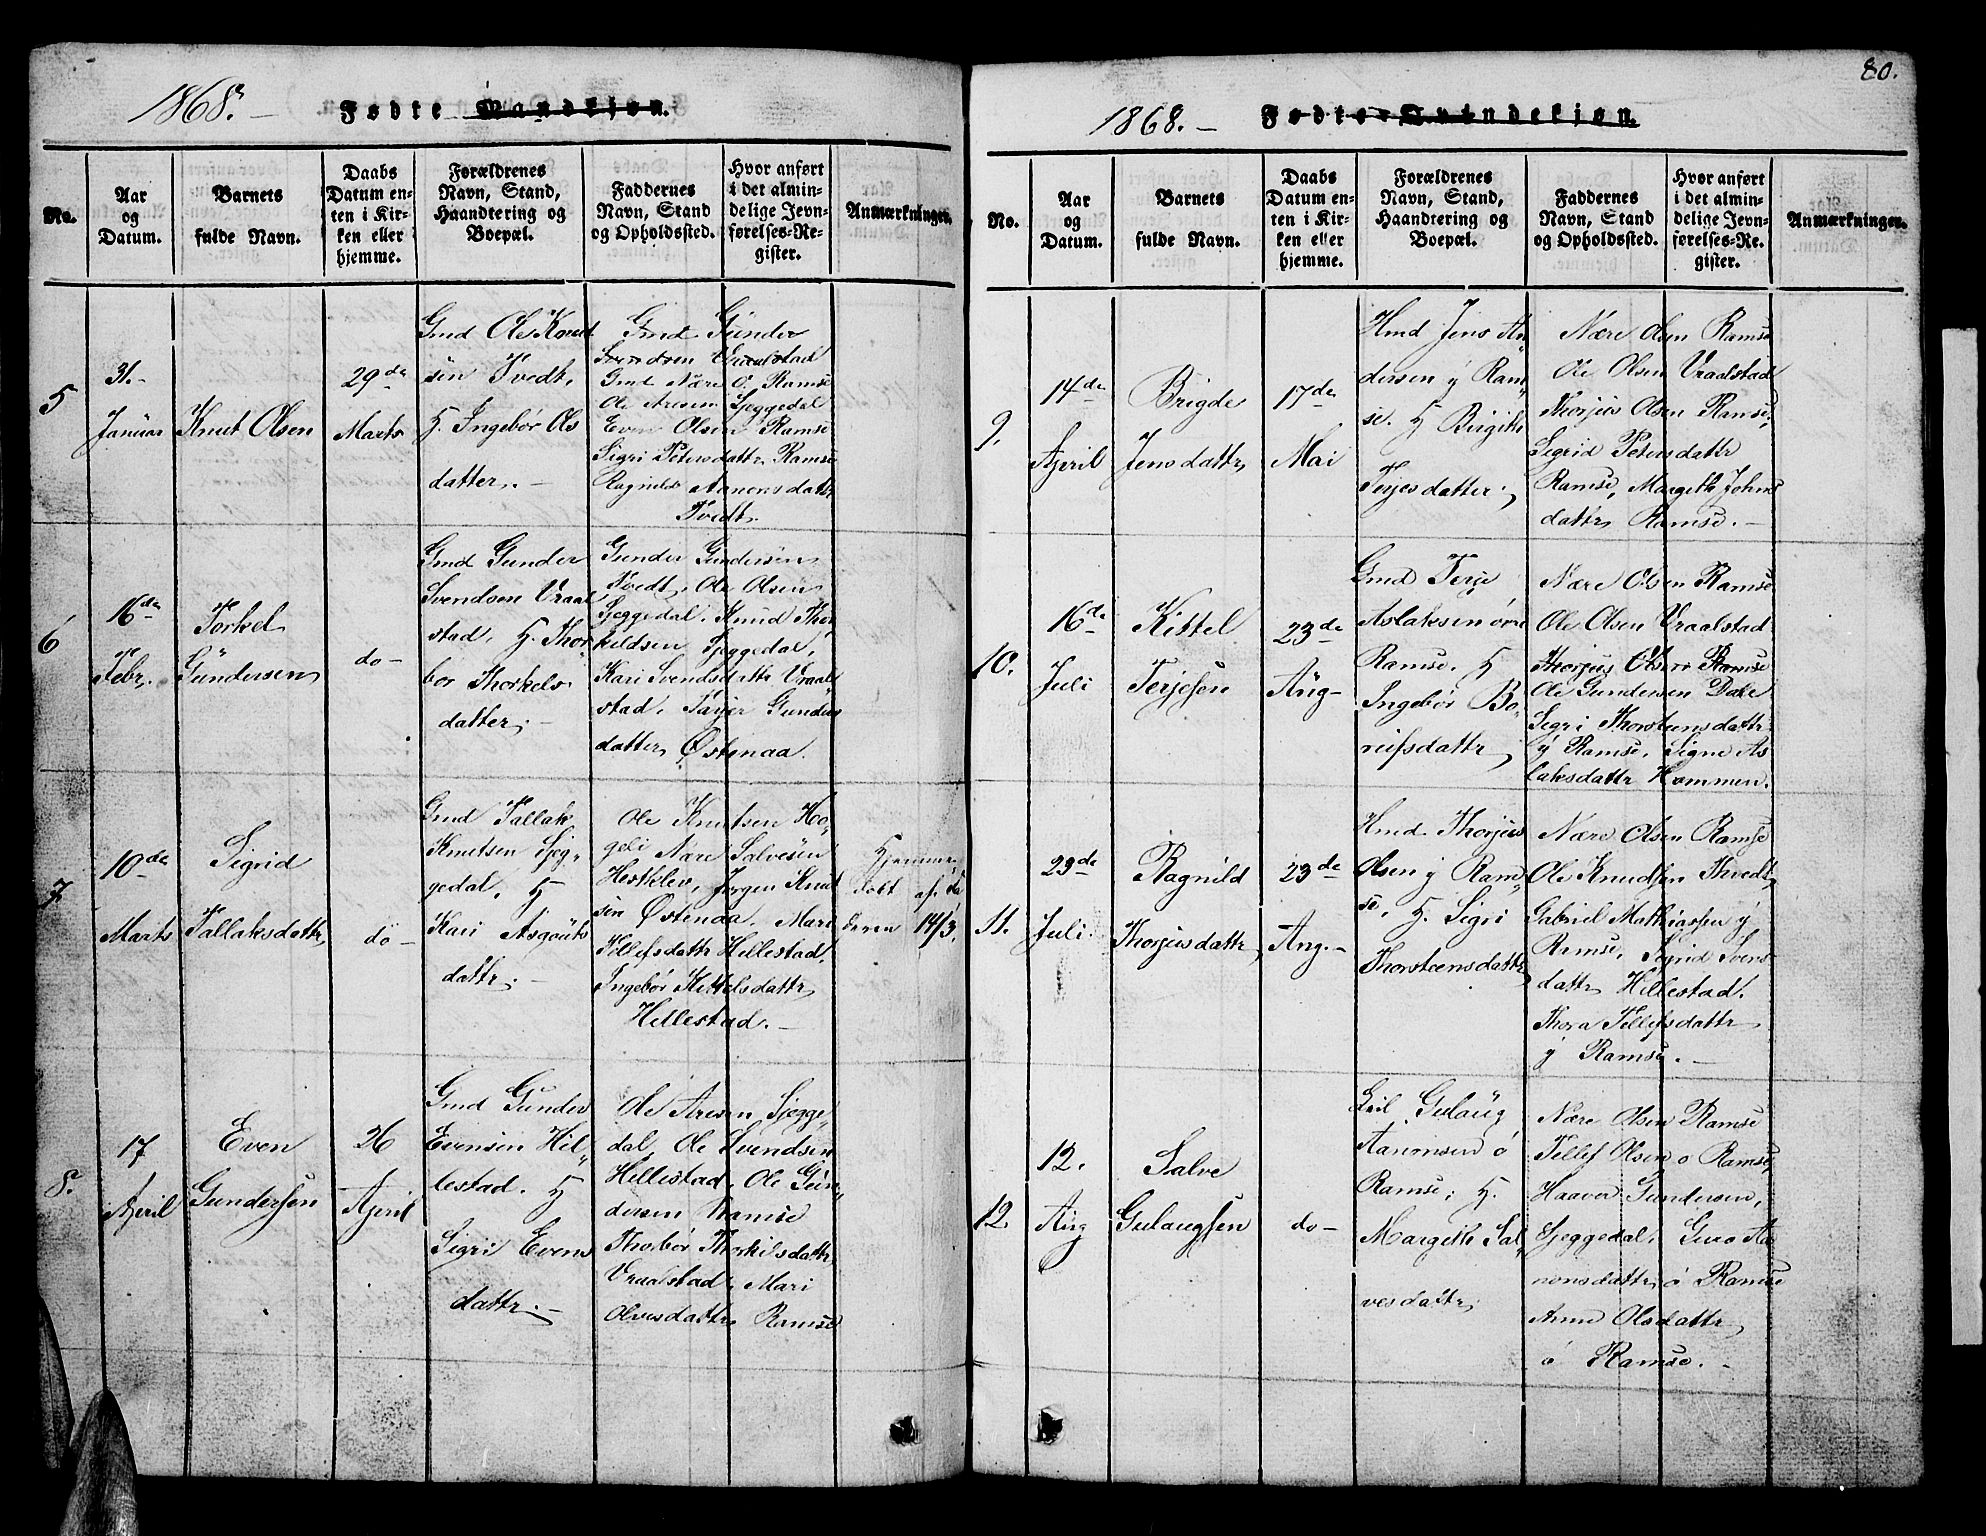 1868. –
Fødte Mandkjøn.
No.
Aar
og
Datum.
Barnets
fulde Navn.
Daabs
Datum en-
ten i Kir-
ken eller
hjemme.
Forældrenes
Navn, Stand,
Haandtering og
Boepæl.
Faddernes
Navn, Stand
og Opholdssted.
Hvor anført
i det almin-
delige Jevn-
førelses-Re-
gister.
Anmærkninger.
5
31.
Januar
Knut Olsen
29de
Marts
Gmd Ole Knud
sen Tvedt,
H. Ingebør Ols
datter. –
Gmd Gunder
Svendsen Vraalstad
Gmd Nære O. Ramse
Ole Aresen Sjeggedal
Even Olsen Ramse
Sigri Petersdattr Ramse
Ragnild Aanonsdattr
Tvedt.
6
16de
Febr.
Torkel
Gundersen
do –
Gmd Gunder
Svendsen Vraal
stad, H. Thor
bor Thorkels
datter. –
Gunder Gundersen
Tvedt, Ole Olsen
Sjeggedal, Knud Thor
kildsen Sjeggedal,
Kari Svendsdattr Vraal
stad, Tarjer Gunders
datter Østenaa.
7.
10de
Marts
Sigrid
Tallaksdattr
do –
Gmd Tallak
Knutsen Sjeg-
gedal, H
Kari Asgouts
dattr. –
Ole Knutsen Ho-
geli Nære Salvesen
Heskelev, Jørgen Knut
sen Østenaa, Mari
Tellefsdattr Hillestad,
Ingebør Kittelsdattr
Hillestad. –
Hjemme
døbt af Fa
deren 14/3.
8.
17
April
Even
Gundersen
26
April
Gmd Gunder
Evensen Hil-
lestad. H
Sigri Evens
dattr. –
Ole Aresen Sjegge-
dal Ole Svendsen
Hillestad, Ole Gun-
dersen Ramse
Thorbør Thorkilsdattr
Vraalstad, Mari
Olvesdattr Ramse
80.
1868. –
Fødte Qvindekjøn.
No.
Aar
og
Datum.
Barnets
fulde Navn.
Daabs
Datum en-
ten i Kir-
ken eller
hjemme.
Forældrenes
Navn, Stand,
Haandtering og
Boepæl.
Faddernes
Navn, Stand
og Opholdssted.
Hvor anført
i det almin-
delige Jevn-
førelses-Re-
gister.
Anmærkninger.
9.
14de
April
Brigde
Jensdattr
17de
Mai
Hmd Jens An
dersen y Ram-
se. H Birgithe
Terjesdatter.
Nære Olsen Ramse
Ole Olsen Vraalstad
Thorjus Olsen Ramse,
Sigrid Petersdattr
Ramse, Margethe Johns
dattr Ramse. –
10.
16de
Juli
Kittel
Terjesen
23de
Aug –
Gmd Terje
Aslaksen øvre
Ramse. H
Ingebør Bo-
rufsdattr
Nære Olsen Ramse
Ole Olsen Vraalstad
Thorjus Olsen Ramse
Ole Gundersen Dale
Sigri Thorsteensdattr
y Ramse, Signe As
laksdattr Hommen.
11.
23de
Juli.
Ragnild
Thorjusdattr
23de
Aug. –
Hmd. Thorjus
Olsen y Ram-
se, H. Sigri
Thorsteensdattr
Nære Olsen Ramse
Ole Knudsen Thvedt,
Gabriel Mathiassen y
Ramse, Sigrid Svens
dattr Hillestad.
Thora Tellefsdattr
y Ramse. –
12.
12.
Aug
Salve
Gulaugsen
do –
Gulaug
Aanonsen ö
Ramse, H.
Margethe Sal-
vesdattr
Nære Olsen Ramse
Tellef Olsen o Ramse,
Haaver Gundersen,
Sjeggedal, Guro Aa
nonsdattr ö Ramse
Anne Olsdattr
ö Ramse. –